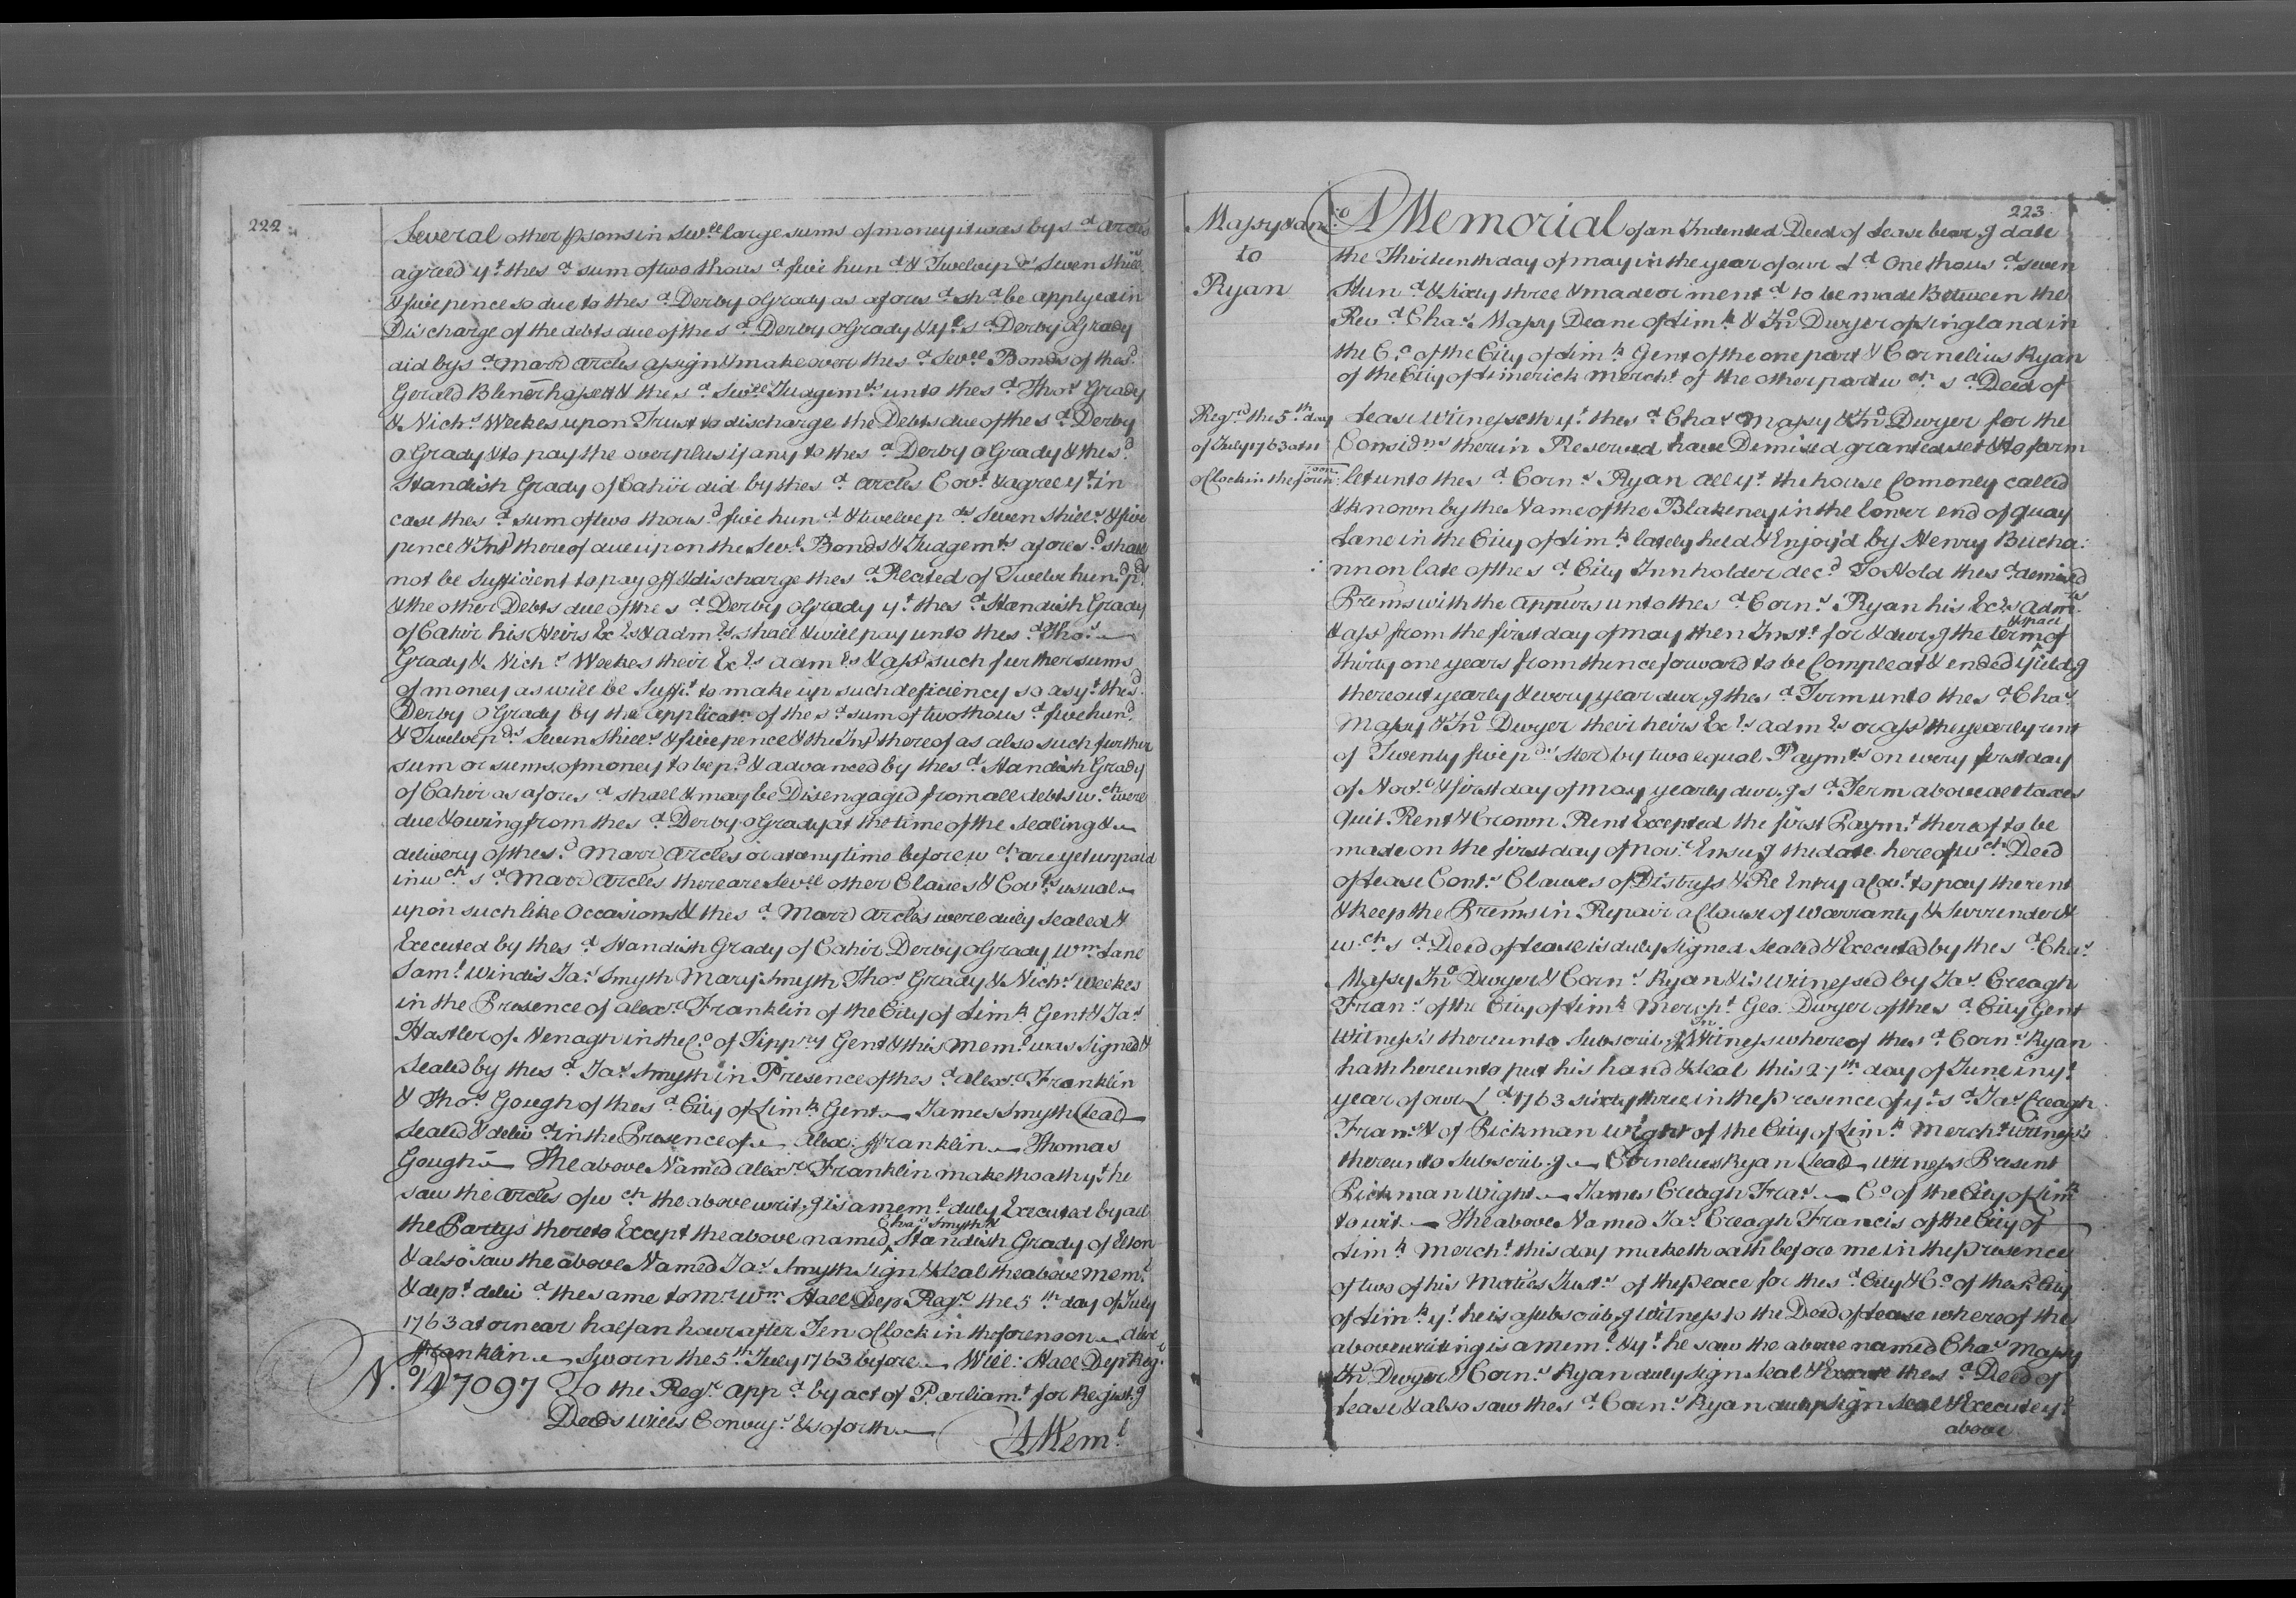 222
Several other psons in Sevll large sums of money it was by sd Arcles
agreed yt the sd sum of two thousd five hund & Twelve pds Seven Shills
& five pence so due to the sd Derby OGrady as aforesd shd be applyed in
Discharge of the debts due of the sd Derby OGrady & yt sd Derby OGrady
did by sd Marr Arcles assign & make over the sd Sevll Bonds of the sd
Gerald Blenerhassett & the sd Sevll Judgemts unto the sd Thos Grady
& Nichs Weekes upon Trust to discharge the Debts due of the sd Derby
oGrady & to pay the overplus if any to the sd Derby oGrady & the sd
Standish Grady of Cahir did by the sd Arcles Covt & agree yt in
case the sd sum of two thousd five hund & twelve pds Seven Shills & five
pence & Intt thereof due upon the Sevl Bonds & Judgemts aforesd shall
not be Sufficient to pay off & discharge the sd Recited of Twelve hund pds
& the other Debts due of the sd Derby OGrady yt the sd Standish Grady
of Cahir his Heirs Exrs & admrs shall & will pay unto the sd Thos
Grady & Nichs Weekes their Exrs admrs & asss such further sums
of money as will be Suffit to make up such deficiency so as yt the sd
Derby OGrady by the applicatn of the sd sum of two thousd five hund
& Twelve pds Seven Shills & five pence & the Intt thereof as also such further
sum or sums of money to be pd & advanced by the sd Standish Grady
of Cahir as aforesd shall & may be Disengaged from all debts wch were
due & owing from the sd Derby OGrady at the time of the Sealing &
delivery of the sd Marr Arcles or at any time before wch are yet unpaid
in wch sd Marr Arcles there are Sevll other Clauses & Covts usual
upon such like Occasions & the sd Marr Arcles were duly Sealed &
Executed by the sd Standish Grady of Cahir Derby OGrady Wm Lane
Saml Windis Jas Smyth Mary Smyth Thos Grady & Nichs Weekes
in the Presence of Alexr Franklin of the City of Limk Gent & Jas
Hastler of Nenagh in the Co of Tippry Gent & this Meml was Signed &
Sealed by the sd Jas Smyth in Presence of the sd Alexr Franklin
& Thos Gough of the sd City of Limk Gent James Smyth (Seal)
Sealed & delivd in the Presence of Alex: Franklin Thomas
Gough The above Named Alexr Franklin maketh oath yt he
saw the Arcles of wch the above writ.g is a meml duly Executed by all
the Partys thereto Except the above named Chas Smyth & Standish Grady of Elton
& also saw the above Named Jas Smyth Sign & Seal the above Meml
& dept delivd the same to Mr Wm Hall Dep Regr the 5th day of July
1763 at or near half an hour after Ten oClock in the forenoon Alexr
Franklin Sworn the 5th July 1763 before Will: Hall Dep Regr
No 147097 To the Regr appd by act of Parliamt for Regist.g
Deeds Wills Conveys & so forth
A Meml
223
Massy & ano
to
Ryan
Regd the 5th day
of July 1763 at 11
oClock in the forenoon
A Memorial of an Indented Deed of Lease bear.g date
the Thirteenth day of May in the year of our Ld One thousd seven
Hund & Sixty three & made or mentd to be made Between the
Revd Chas Massy Deane of Limk & Jno Dwyer of Singland in
the Co of the City of Limk Gent of the one part & Cornelius Ryan
of the City of Limerick Mercht of the other part wch sd Deed of
Lease Witnesseth yt the sd Chas Massy & Jno Dwyer for the
Considns therein Reserved have Demised granted set & to farm
let unto the sd Corns Ryan all yt the house Comonly called
& known by the Name of the Blakeney in the lower end of Quay
Lane in the City of Limk lately held & Enjoy'd by Henry Bucha:
:nnon late of the sd City Innholder decd To Hold the sd demised
Prems with the Appurs unto the sd Corns Ryan his Exrs admrs
& asss from the first day of May then Instt for & dur.g the term & space of
thirty one years from thence forward to be Compleat & ended yield.g
thereout yearly & every year dur.g the sd Term unto the sd Chas
Massy & Jno Dwyer their heirs Exrs admrs or asss the yearly rent
of Twenty five pds Ster by two equal Paymts on every first day
of Novr & first day of May yearly dur.g sd Term above all taxes
Quit Rent & Crown Rent Excepted the first Paymt thereof to be
made on the first day of Novr Ensu.g the date hereof wch Deed
of Lease Conts Clauses of Distress & Re Entry a Covt to pay the rent
& keep the Prems in Repair a Clause of Warranty & Surrender &
wch sd Deed of Lease is duly Signed Sealed & Executed by the sd Chas
Massy Jno Dwyer & Corns Ryan & is Witnessed by Jas Creagh
Frans of the City of Limk Mercht Geo. Dwyer of the sd City Gent
Witness's thereunto Subscrib.g In Witness whereof the sd Corns Ryan
hath hereunto put his hand & Seal this 27th day of June in yt
year of our Ld 1763 sixty three in the presence of yt sd Jas Creagh
Frans & of Rickman Wight of the City of Limk Mercht witness's
thereunto Subscrib.g Cornelius Ryan (Seal) Witness Present
Rickman Wight James Creagh Fras Co of the City of Limk
to wit The above Named Jas Creagh Francis of the City of
Limk Mercht this day maketh oath before me in the presence
of two of his Maties Justs of the peace for the sd City & Co of the sd City
of Limk yt he is a subscrib.g witness to the Deed of Lease whereof the
above writing is a meml & yt he saw the above named Chas Massy
Jno Dwyer & Corns Ryan duly sign seal & Execute the sd Deed of
Lease & also saw the sd Corns Ryan duly sign seal & Execute yt
above